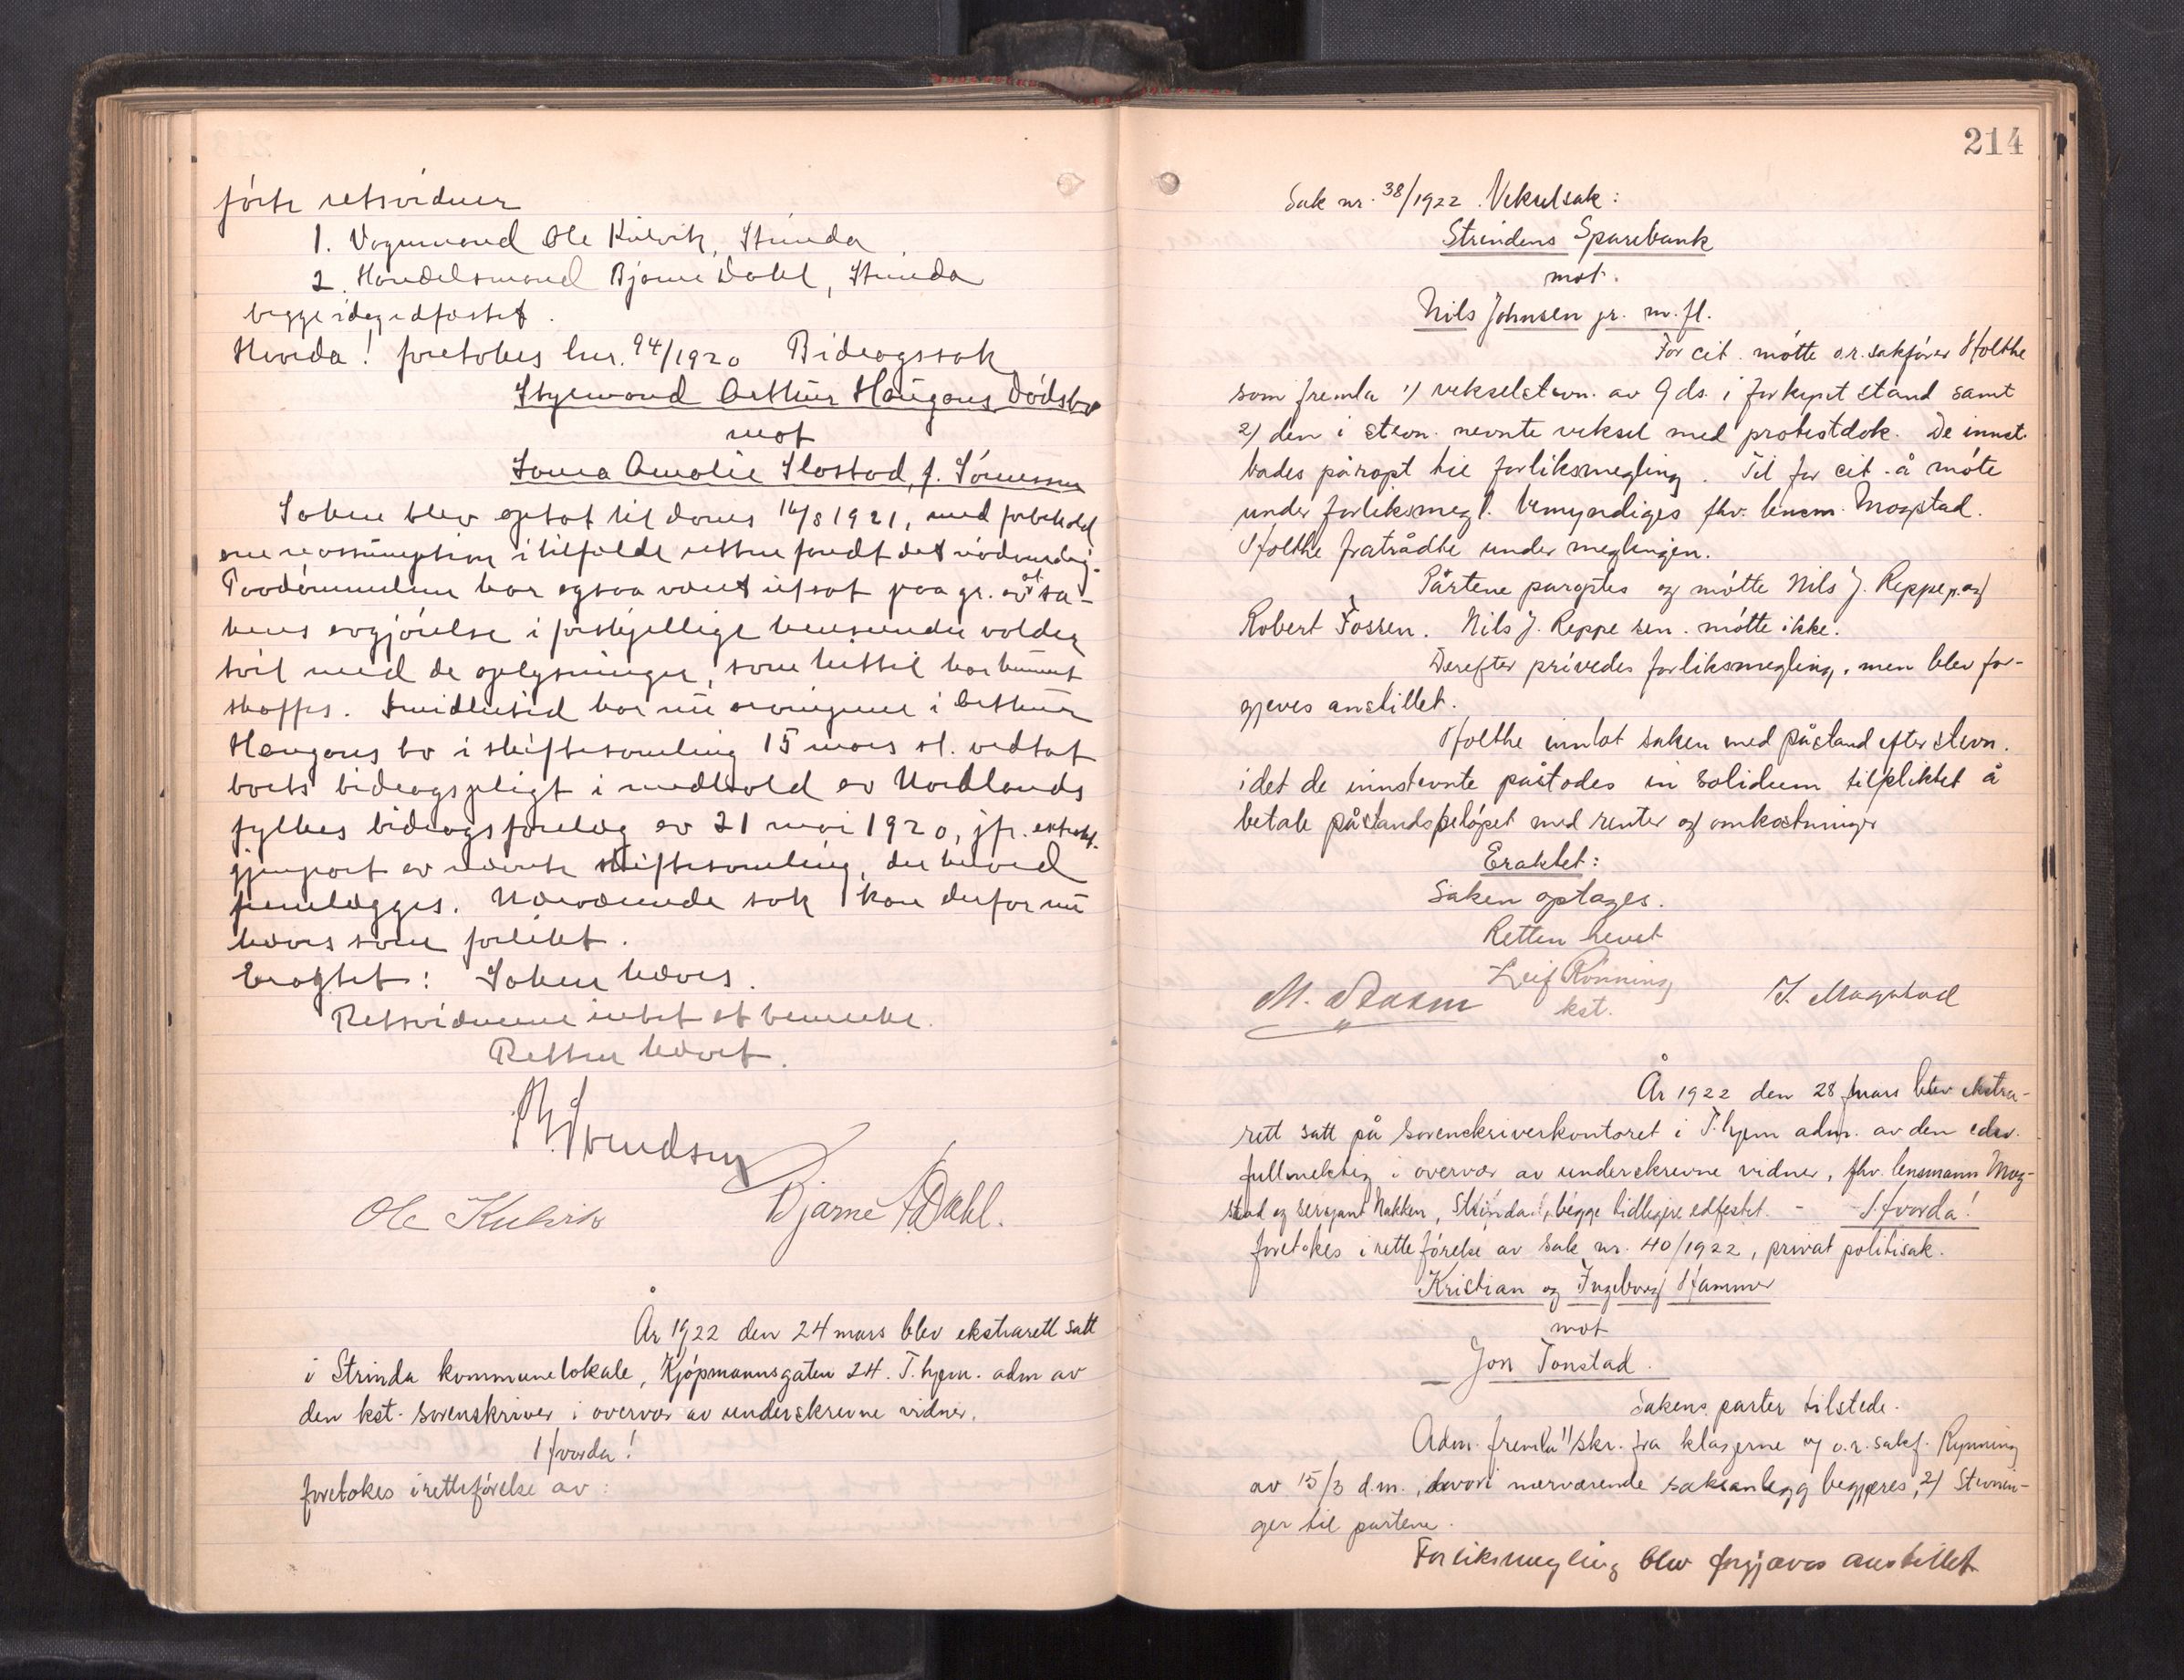 førte retsvidner
1. Vognmand Ole Kulvik, Strinda
2. Handelsmand Bjarne Dahl, Strinda
begge idag edfæstet.
Hvorda! foretokes lnr. 94/1920 Bidragssak
Styrmand Arthur Haugans Dødsbo
mot
Amalie f. Sørensen
Saken blev optat til doms 16/8 1921, med forbehold
om reassumption i tilfælde retten fandt det nødvendig.
Paadømmelsen har ogsaa været utsat paa gr. av at sa-
kens avgjørelse i forskjellige henseender volder
tvil med de oplysninger, som hittil har kunnet
skaffes. Imidlertid har nu arvingerne i Arthur
Haugans bo i skiftesamling 15 mars sl. vedtat
boets bidragspligt i medhold av Nordlands
fylkes bidragsforelæg av 21 mai 1920, jfr.
gjenpart av nævnte skiftesamling, der herved
fremlægges. Nærværende sak kan derfor nu
hæves som forlikt.
Eragtet: Saken hæves.
Retsvidnerne intet at bemerke.
Retten hævet.
Ole Kulvik Bjarne Dahl.
År 1922 den 24 mars blev ekstrarett satt
i Strinda kommunelokale, Kjøpmannsgaten 24. T.hjem. adm av
den kst. sorenskriver i overvær av underskrevne vidner.
Hvorda!
foretokes iretteførelse av:
214
Sak nr. 38/1922. Vekselsak:
Strindens Sparebank
mot.
Nils Johnsen jr. m. fl.
For cit. møtte o.r. sakfører Holthe
som fremla 1) vekselstevn. av 9 ds. i forkynt stand samt
2) den i stevn. nevnte veksel med protestdok. De innst.
bades påropt til forliksmegling. Til for cit. å møte
under forliksmegl. bemyndiges fhv. lensm. Mogstad.
Holthe fratrådte under meglingen.
Pårtene paroptes og møtte Nils J. Reppe jr. og
Robert Fossen. Nils J. Reppe sen. møtte ikke.
Derefter prøvedes forliksmegling, men blev for-
gjeves anstillet.
Holthe innlot saken med påstand efter stevn.
idet de innstevnte påstodes in solidum tilpliktet å
betale påstandsbeløpet med renter og omkostninger
Eraktet:
Saken optages.
Retten hevet
Leif Rønning
kst.
J. Mogstad
År 1922 den 28 mars blev ekstra-
rett satt på sorenskriverkontoret i T.hjem adm. av den edsv.
fullmektig i overvær av underskrevne vidner, fhv. lensmann Mog-
stad og sersjant Nakken, Strinda, begge tidligere edfestet. - Hvorda!
foretokes iretteførelse av sak nr. 40/1922, privat politisak.
Kristian og Ingeborg Hammer
mot
Jon Tonstad.
Sakens parter tilstede.
Adm. fremla 1) skr. fra klagerne og o.r. sakf. Rynning
av 15/3 d.m., hvori nærværende saksanlegg begjæres, 2) Stevnin-
ger til partene.
Forliksmegling blev forgjæves anstillet